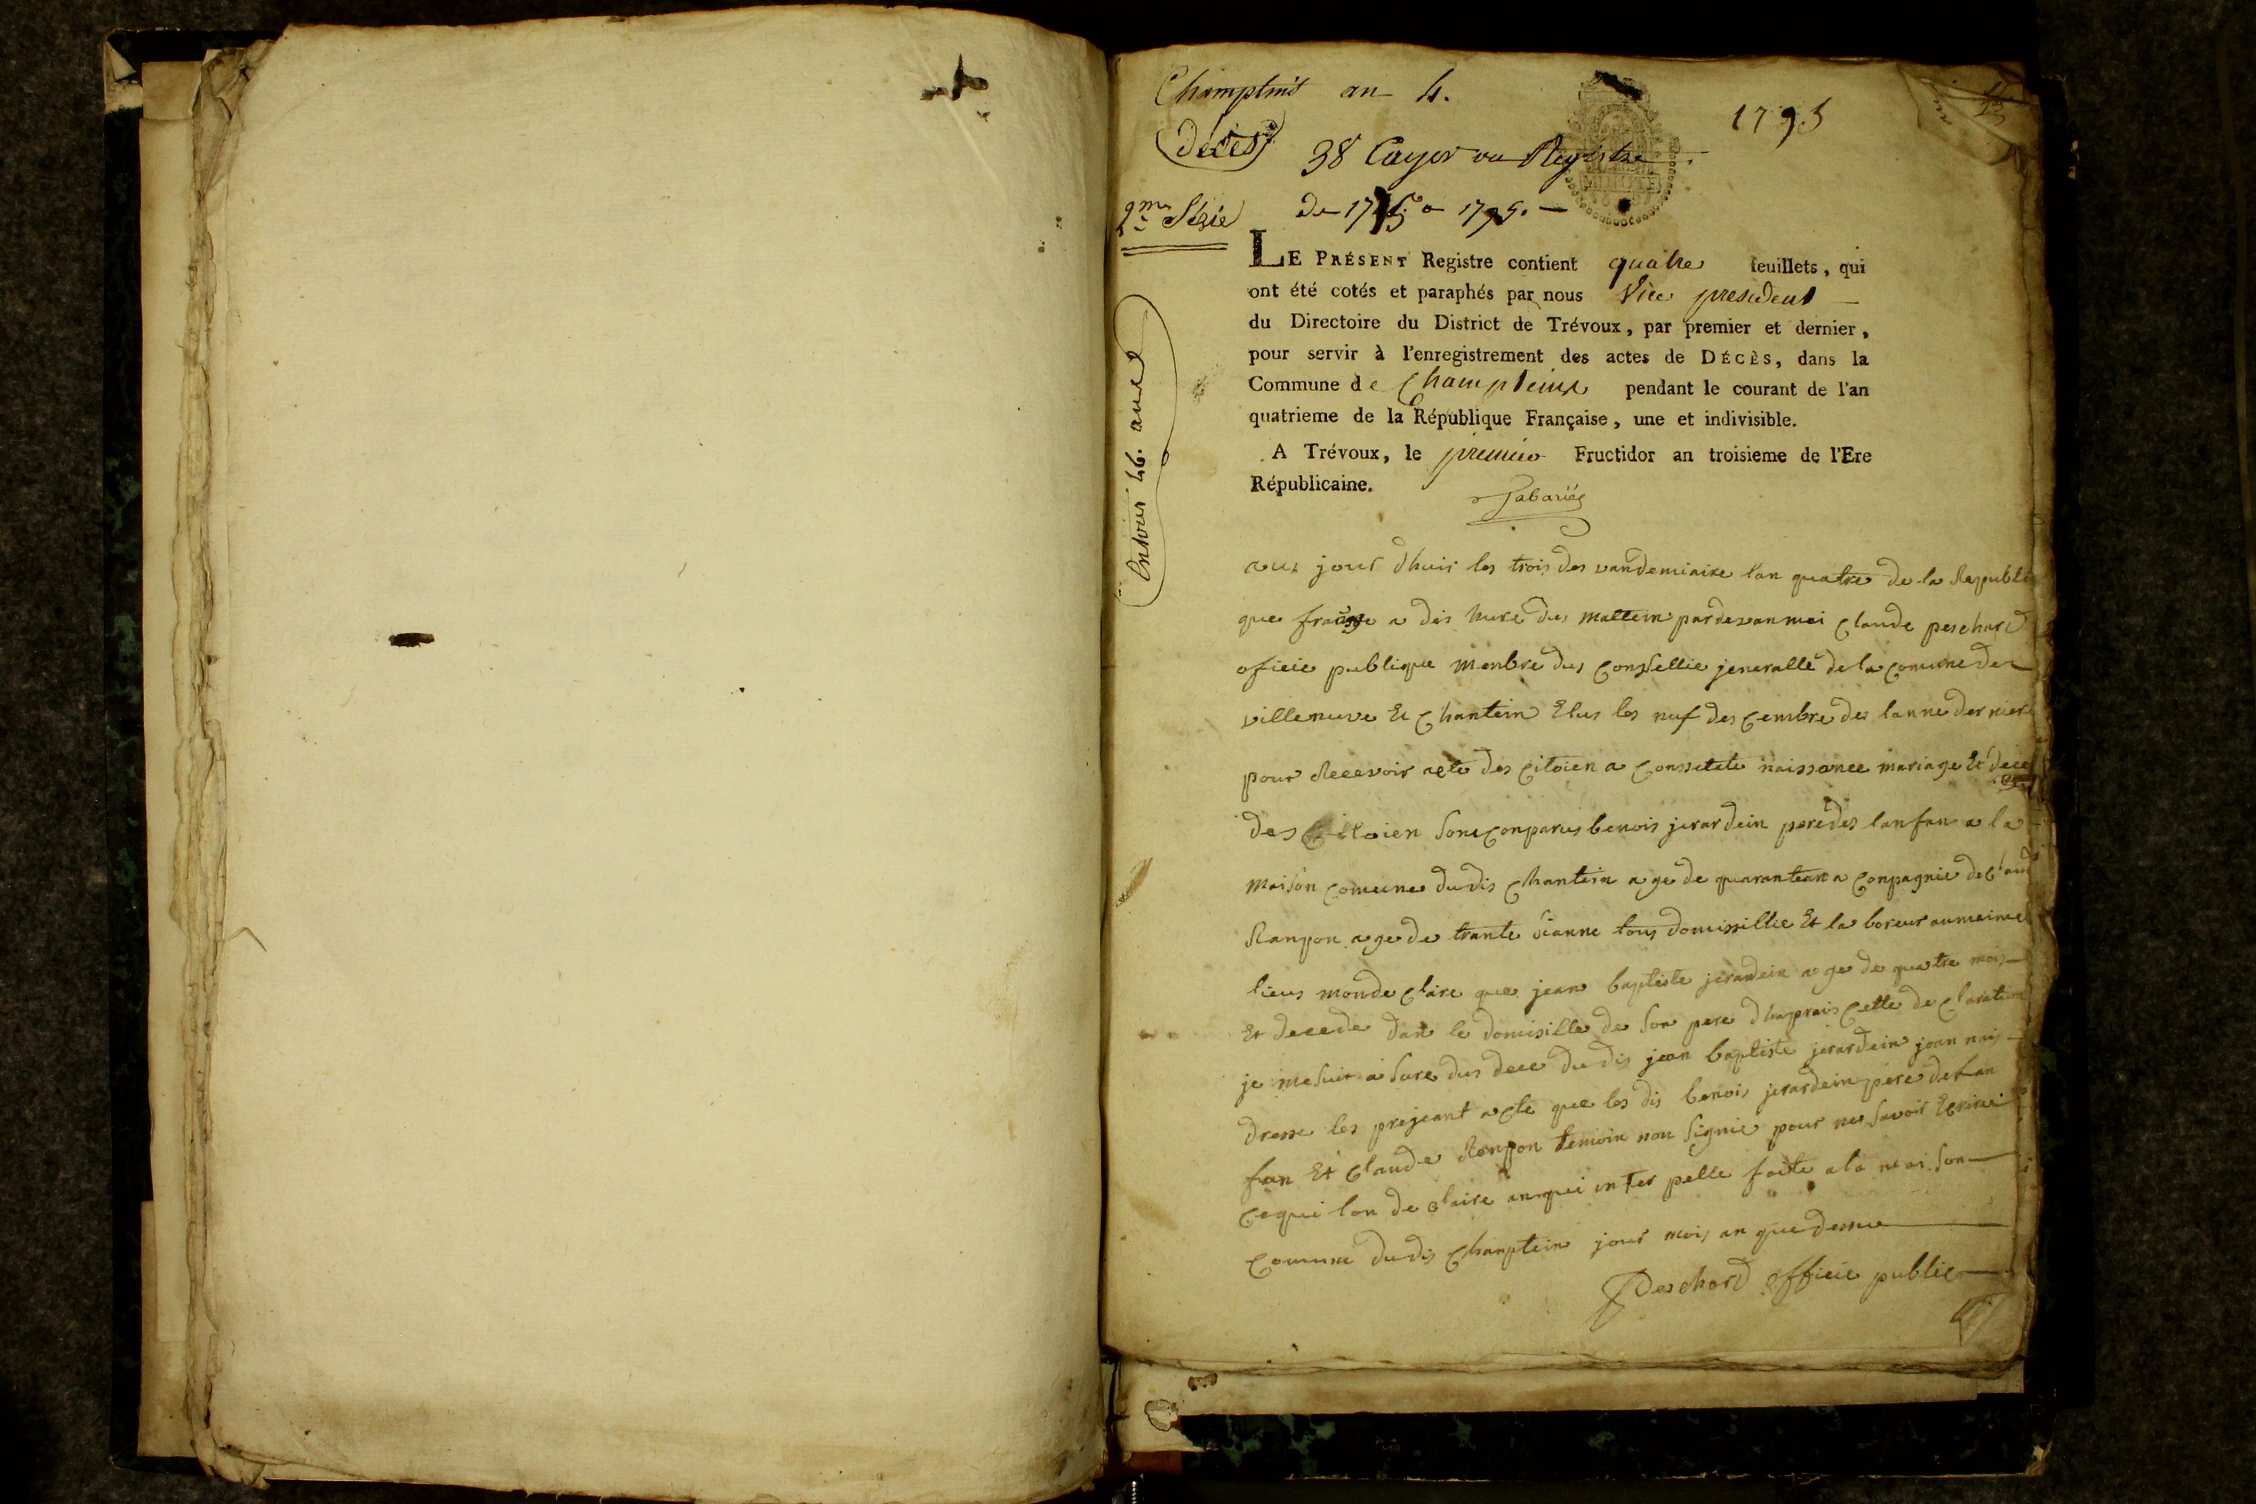 Champtins an 4.
1795
décès
38 Cayer ou Registre
2me Série
de 1795 a 1795.
LE PRÉSENT Registre contient quatre feuillets, qui
ont été cotés et paraphés par nous Vice president
du Directoire du District de Trévoux, par premier et dernier,
pour servir à l'enregistrement des actes de DÉCÈS, dans la
Commune de Champteins pendant le courant de l'an
quatrieme de la République Française, une et indivisible.
A Trévoux, le premier Fructidor an troisieme de l'Ere
Républicaine.
aux jour dhuis les trois des vandemiaire lan quatre de la Republi
que a dis hure dus mattein pardevan moi Claude peschard
oficie publique menbre dus Conssellie jeneralle de la Comune de
villenuve Et Chantein Elus les nuf des Cembre des lanne dernier
pour Recevoir acte des Citoien a Conssetate naissance mariage Et dece
des Citoien sone Conparus benois jerardein pere des lanfan a la
maison Comune dudis Chantein age de quarantean a Conpagnie de Claud
Ranpon age de trante sianne tous domissillie Et la boreur aumeime
lieus monde Claire que jean baptiste jerardein age de quatre mois
Et decede dan le domisille de son pere dhaprais Cette de Claration
je me suit a sure dus dece dudis jean baptiste jerardein jean nais
dresse les prejeant acte que les dis benois jerardein pere de lan
fan Et Claude Ranpon temoin non signie pour ne savoir Ecrire
Cequi lon de Claire anqui inter pelle faite a la mai son
Comune dudis Chanptein jour mois an que dessue
Peschard officie public